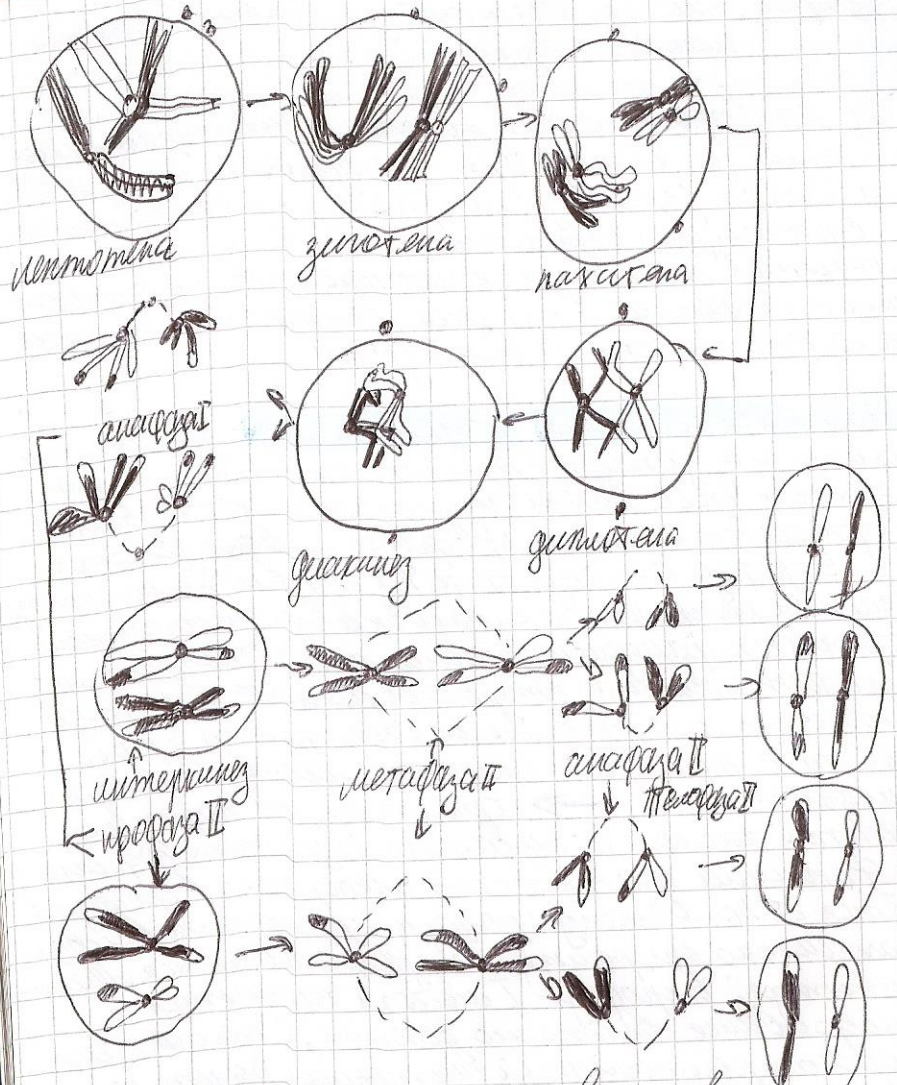 лептотена
зиготена
пахитена
анафаза I
диакинез
диплотена
интеркинез
профаза II
метафаза II
анафаза II
телофаза II